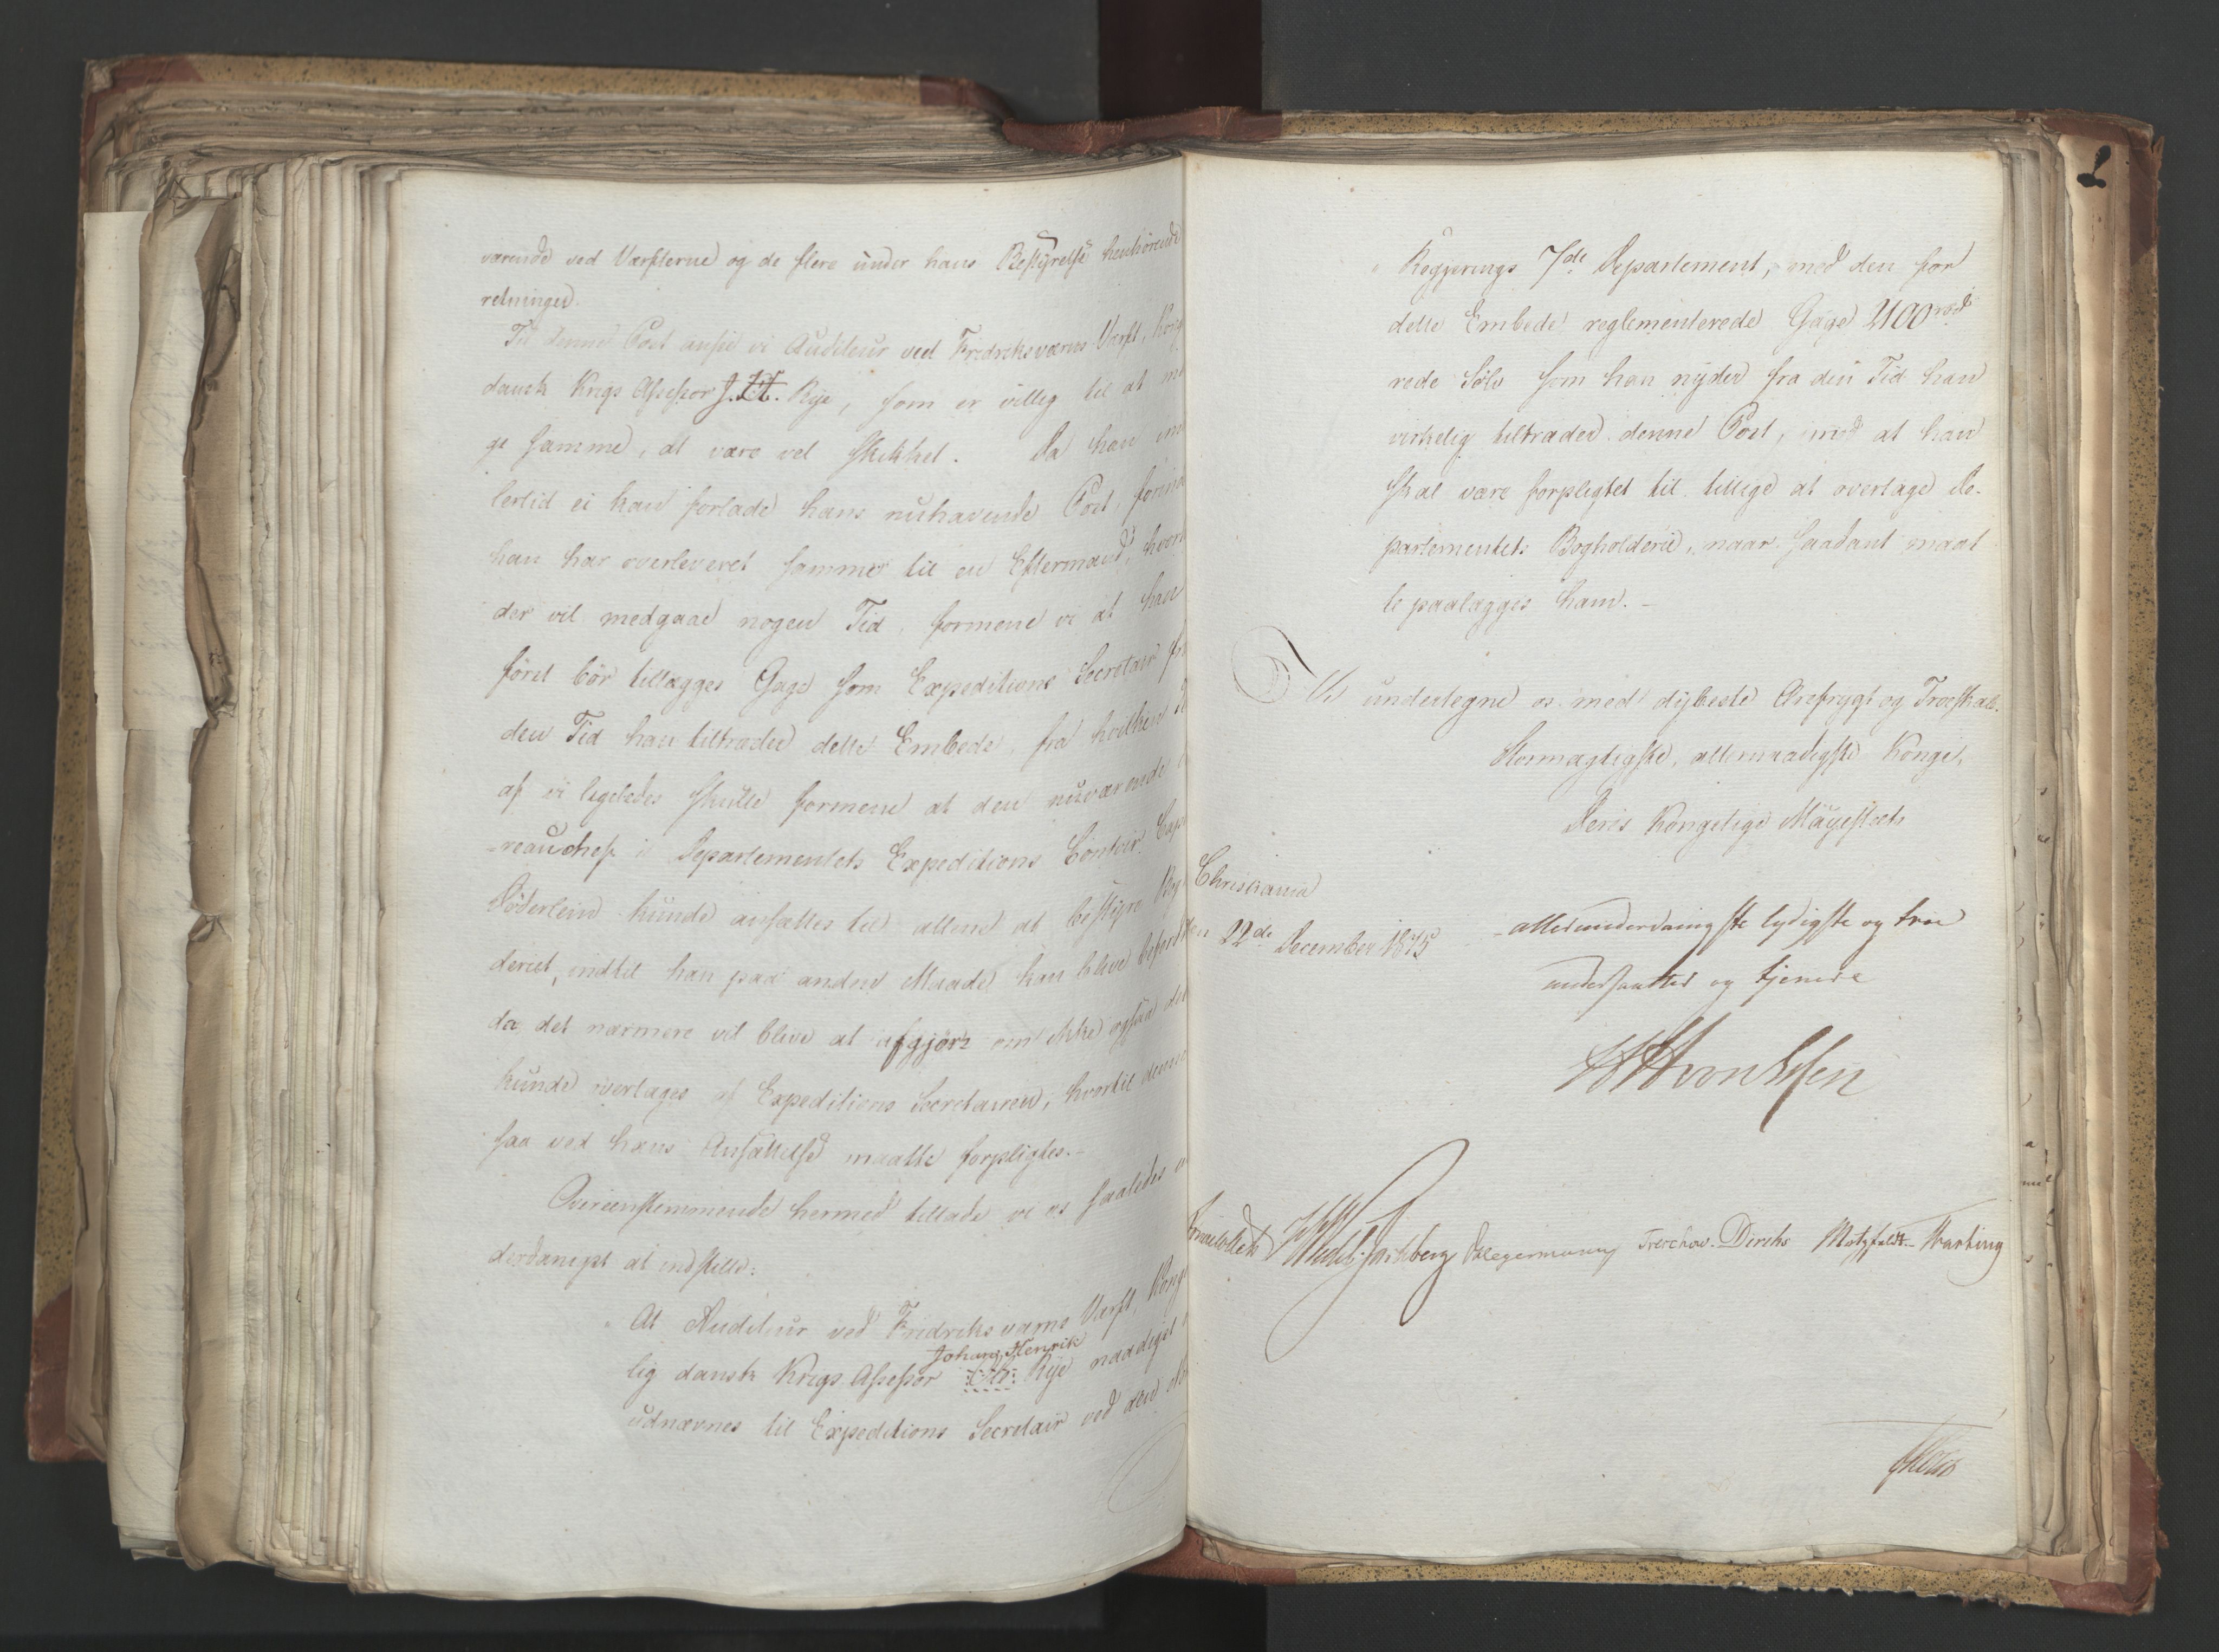 værende ved Værfterne og de flere under hans Bestyrelse henhörende
retninger.
Til denne Post ansee vi Auditeur ved Fredriksværns Værft, Kong
dansk Krigs Assessor J. H. Rye, som er villig til at mo
ge samme, at være vel skikket. Da han im
lertid ei kan forlade hans nuhavende Post, forind
han har overleveret samme til en Eftermand, hvor
der vil medgaae nogen Tid, formene vi at han
först bör tillægges Gage som Expeditions Secretair fra
den Tid han tiltræder dette Embede, fra hvilken
af vi ligeledes skulle formene at den nuværende
-reauchef i Departementets Expeditions Contoir Capt
Söderlein kunde ansættes til allene at bestyre Bog
deriet, indtil han paa anden Maade kan blive befordr
da det nærmere vil blive at afgjöre om ikke ogsaa det
kunde overtages af Expeditions Secretairen, hvortil denne
saa ved hans Ansættelse maatte forpligtes.-
Overeenstemmende hermed tillade vi os saaledes
derdanigst at indstille:
At Auditeur ved Fredriksværns Værft, Konge
Johan Henrik
lig dansk Krigs Assessor Rye naadigst
udnævnes til Expeditions Secretair ved den
Regjerings 7de Departement, med den for
dette Embede reglementerede Gage
rede Sölv som han nyder fra den Tid han
virkelig tiltræder denne Post, imod at han
skal være forpligtet til tillige at overtage De-
partementets Bogholderie, naar saadant maat
te paalægges ham.-
Vi undertegne os med dybeste Ærefrygt og Troeskab.
Stormægtigste, allernaadigste Konge,
Deres Kongelige Mayestæts
Christiania
den 22de December 1815
allerunderdanigste lydigste og troe
undersaatter og tjenere
Wedel Jarlsberg Hegermann Treschow. Diriks Motzfeldt.